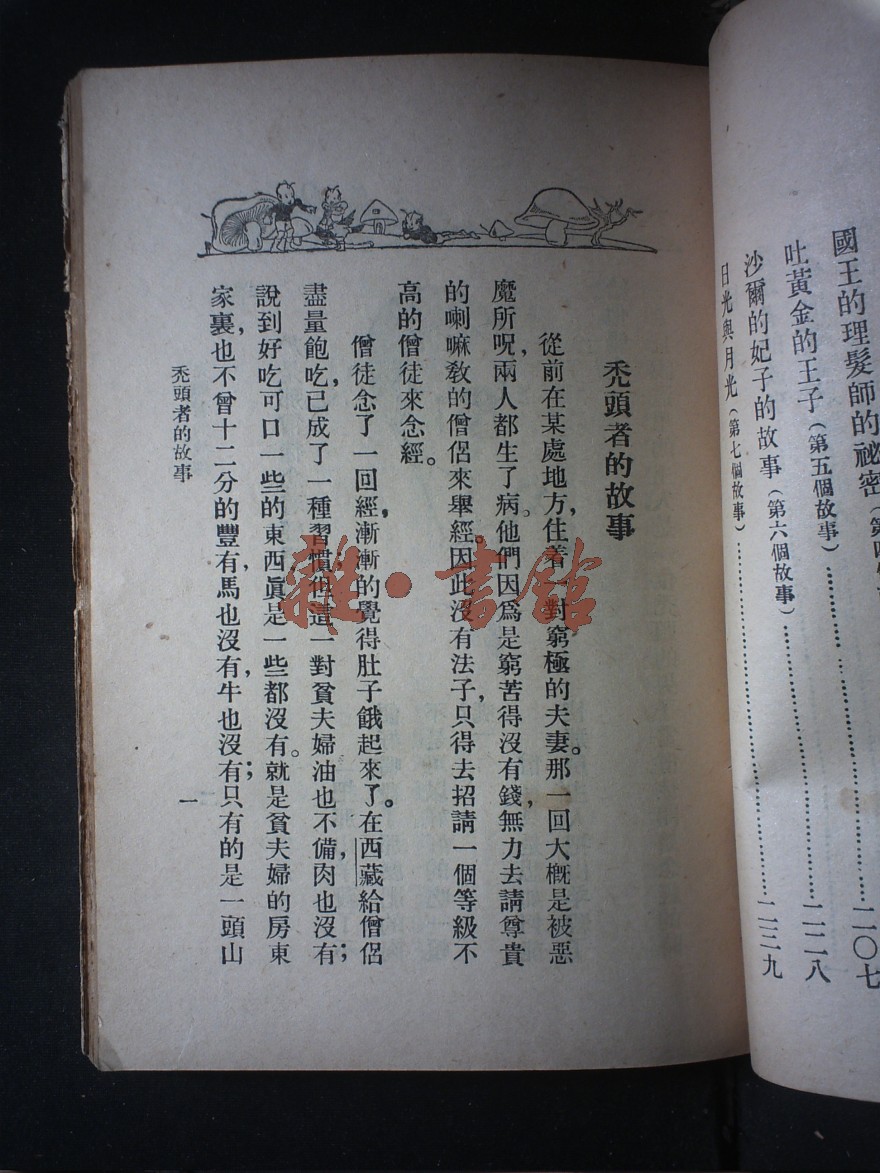 國王的理髮師的祕密(第四個
二〇七
吐黃金的王子(第五個故事)
二二八
沙爾的妃子的故事(第六個故事)
日光與月光(第七個故事)
二三九
禿頭者的故事
從前在某處地方,住着一對窮極的夫妻。那一回大概是被惡
魔所呪,兩人都生了病。他們因爲是窮苦得沒有錢,無力去請尊貴
的喇嘛教的僧侶來舉經。因此沒有法子,只得去招請一個等級不
高的僧徒來念經。
僧徒念了一回經,漸漸的覺得肚子餓起來了。在西藏給僧侶
盡量飽吃,已成了一種習慣;但這一對貧夫婦油也不備,肉也沒有;
說到好吃可口一些的東西眞是一些都沒有。就是貧夫婦的房東
家裏,也不曾十二分的豐有,馬也沒有,牛也沒有;只有的是一頭山
禿頭者的故事
一
雜·書館